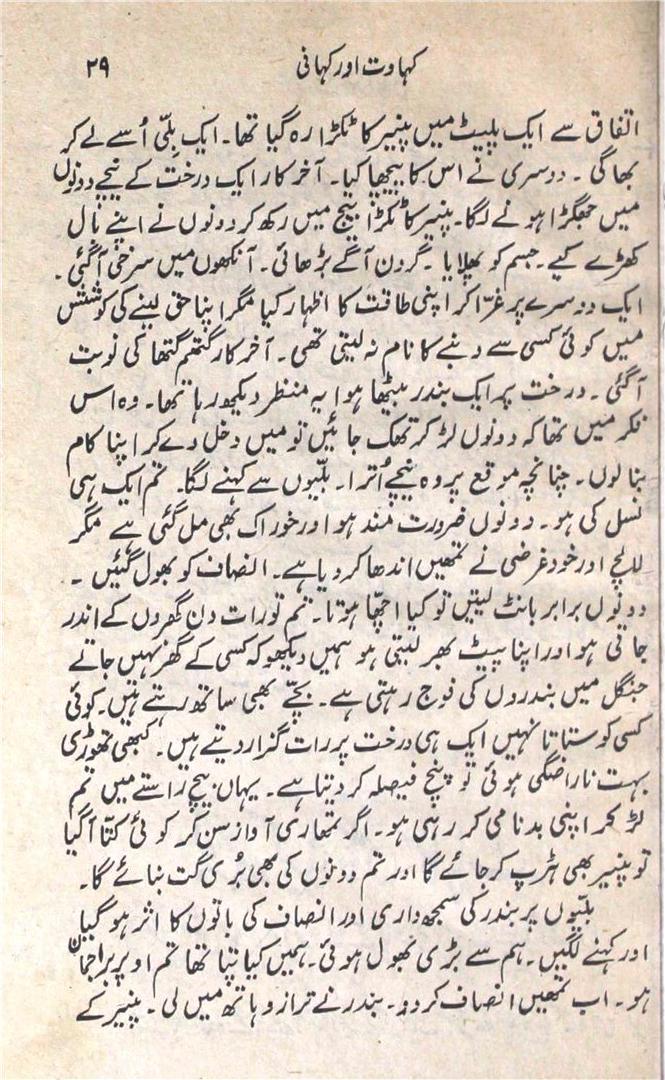 کہاوت اور کہانی
۲۹
اتفاق سے ایک پلیٹ میں پنیر کا ٹکڑا رہ گیا تھا۔ ایک بلّی اُسے لے کر
بھاگی ۔ دوسری نے اس کا پیچھا کیا۔ آخر کار ایک درخت کے نیچے دونوں
میں جھگڑا ہونے لگا۔ پنیر کا ٹکڑا بیچ میں رکھ کر دونوں نے اپنے بال
کھڑے کیے۔ جسم کو پھلایا ۔ گردن آگے بڑھائی۔ آنکھوں میں سرخی آگئی ۔
ایک دوسرے پر غرّا کر اپنی طاقت کا اظہار کیا مگر اپنا حق لینے کی کوشش
میں کوئی کسی سے دبنے کا نام نہ لیتی تھی ۔ آخر کار گتھم گتھا کی نوبت
آگئی ۔ درخت پر ایک بندر بیٹھا ہوا یہ منظر دیکھ رہا تھا۔ وہ اس
فکر میں تھا کہ دونوں لڑ کر تھک جائیں تو میں دخل دے کر اپنا کام
بنا لوں۔ چنانچہ موقع پر وہ نیچے اُترا۔ بلّیوں سے کہنے لگا۔ تم ایک ہی
نسل کی ہو۔ دونوں ضرورت مند ہو اور خوراک بھی مل گئی ہے مگر
لالچ اور خود غرضی نے تمھیں اندھا کر دیا ہے۔ انصاف کو بھول گئیں ۔
دونوں برابر بانٹ لیتیں تو کیا اچھا ہوتا۔ تم تو رات دن گھروں کے اندر
جاتی ہو اور اپنا پیٹ بھر لیتی ہو ہمیں دیکھو کہ کسی کے گھر نہیں جاتے
جنگل میں بندروں کی فوج رہتی ہے۔ بچّے بھی ساتھ رہتے ہیں۔ کوئی
کسی کو ستاتا نہیں ایک ہی درخت پر رات گزار دیتے ہیں۔ کبھی تھوڑی
بہت ناراضگی ہوئی تو پنچ فیصلہ کر دیتا ہے۔ یہاں بیچ راستے میں تم
لڑ کر اپنی بدنامی کر رہی ہو۔ اگر تمھاری آواز سن کر کوئی کتّا آگیا
تو پنیر بھی ہڑپ کر جائے گا اور تم دونوں کی بھی بُری گت بنائے گا۔
بلّیوں پر بندر کی سمجھ داری اور انصاف کی باتوں کا اثر ہو گیا
اور کہنے لگیں۔ ہم سے بڑی بھول ہوئی۔ ہمیں کیا پتا تھا تم اوپر براجمان
ہو۔ اب تمھیں انصاف کر دو۔ بندر نے ترازو ہاتھ میں لی ۔ پنیر کے